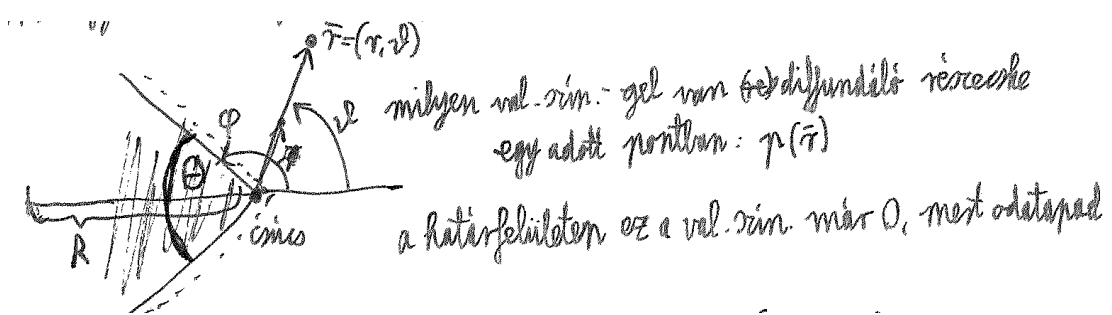 r̄=(r,ϑ)
milyen val.szín.-gel van diffundáló részecske
φ
ϑ
egy adott pontban: p(r̄)
Θ
csúcs
R
a határfelületen ez a val.szín. már 0, mert odatapad